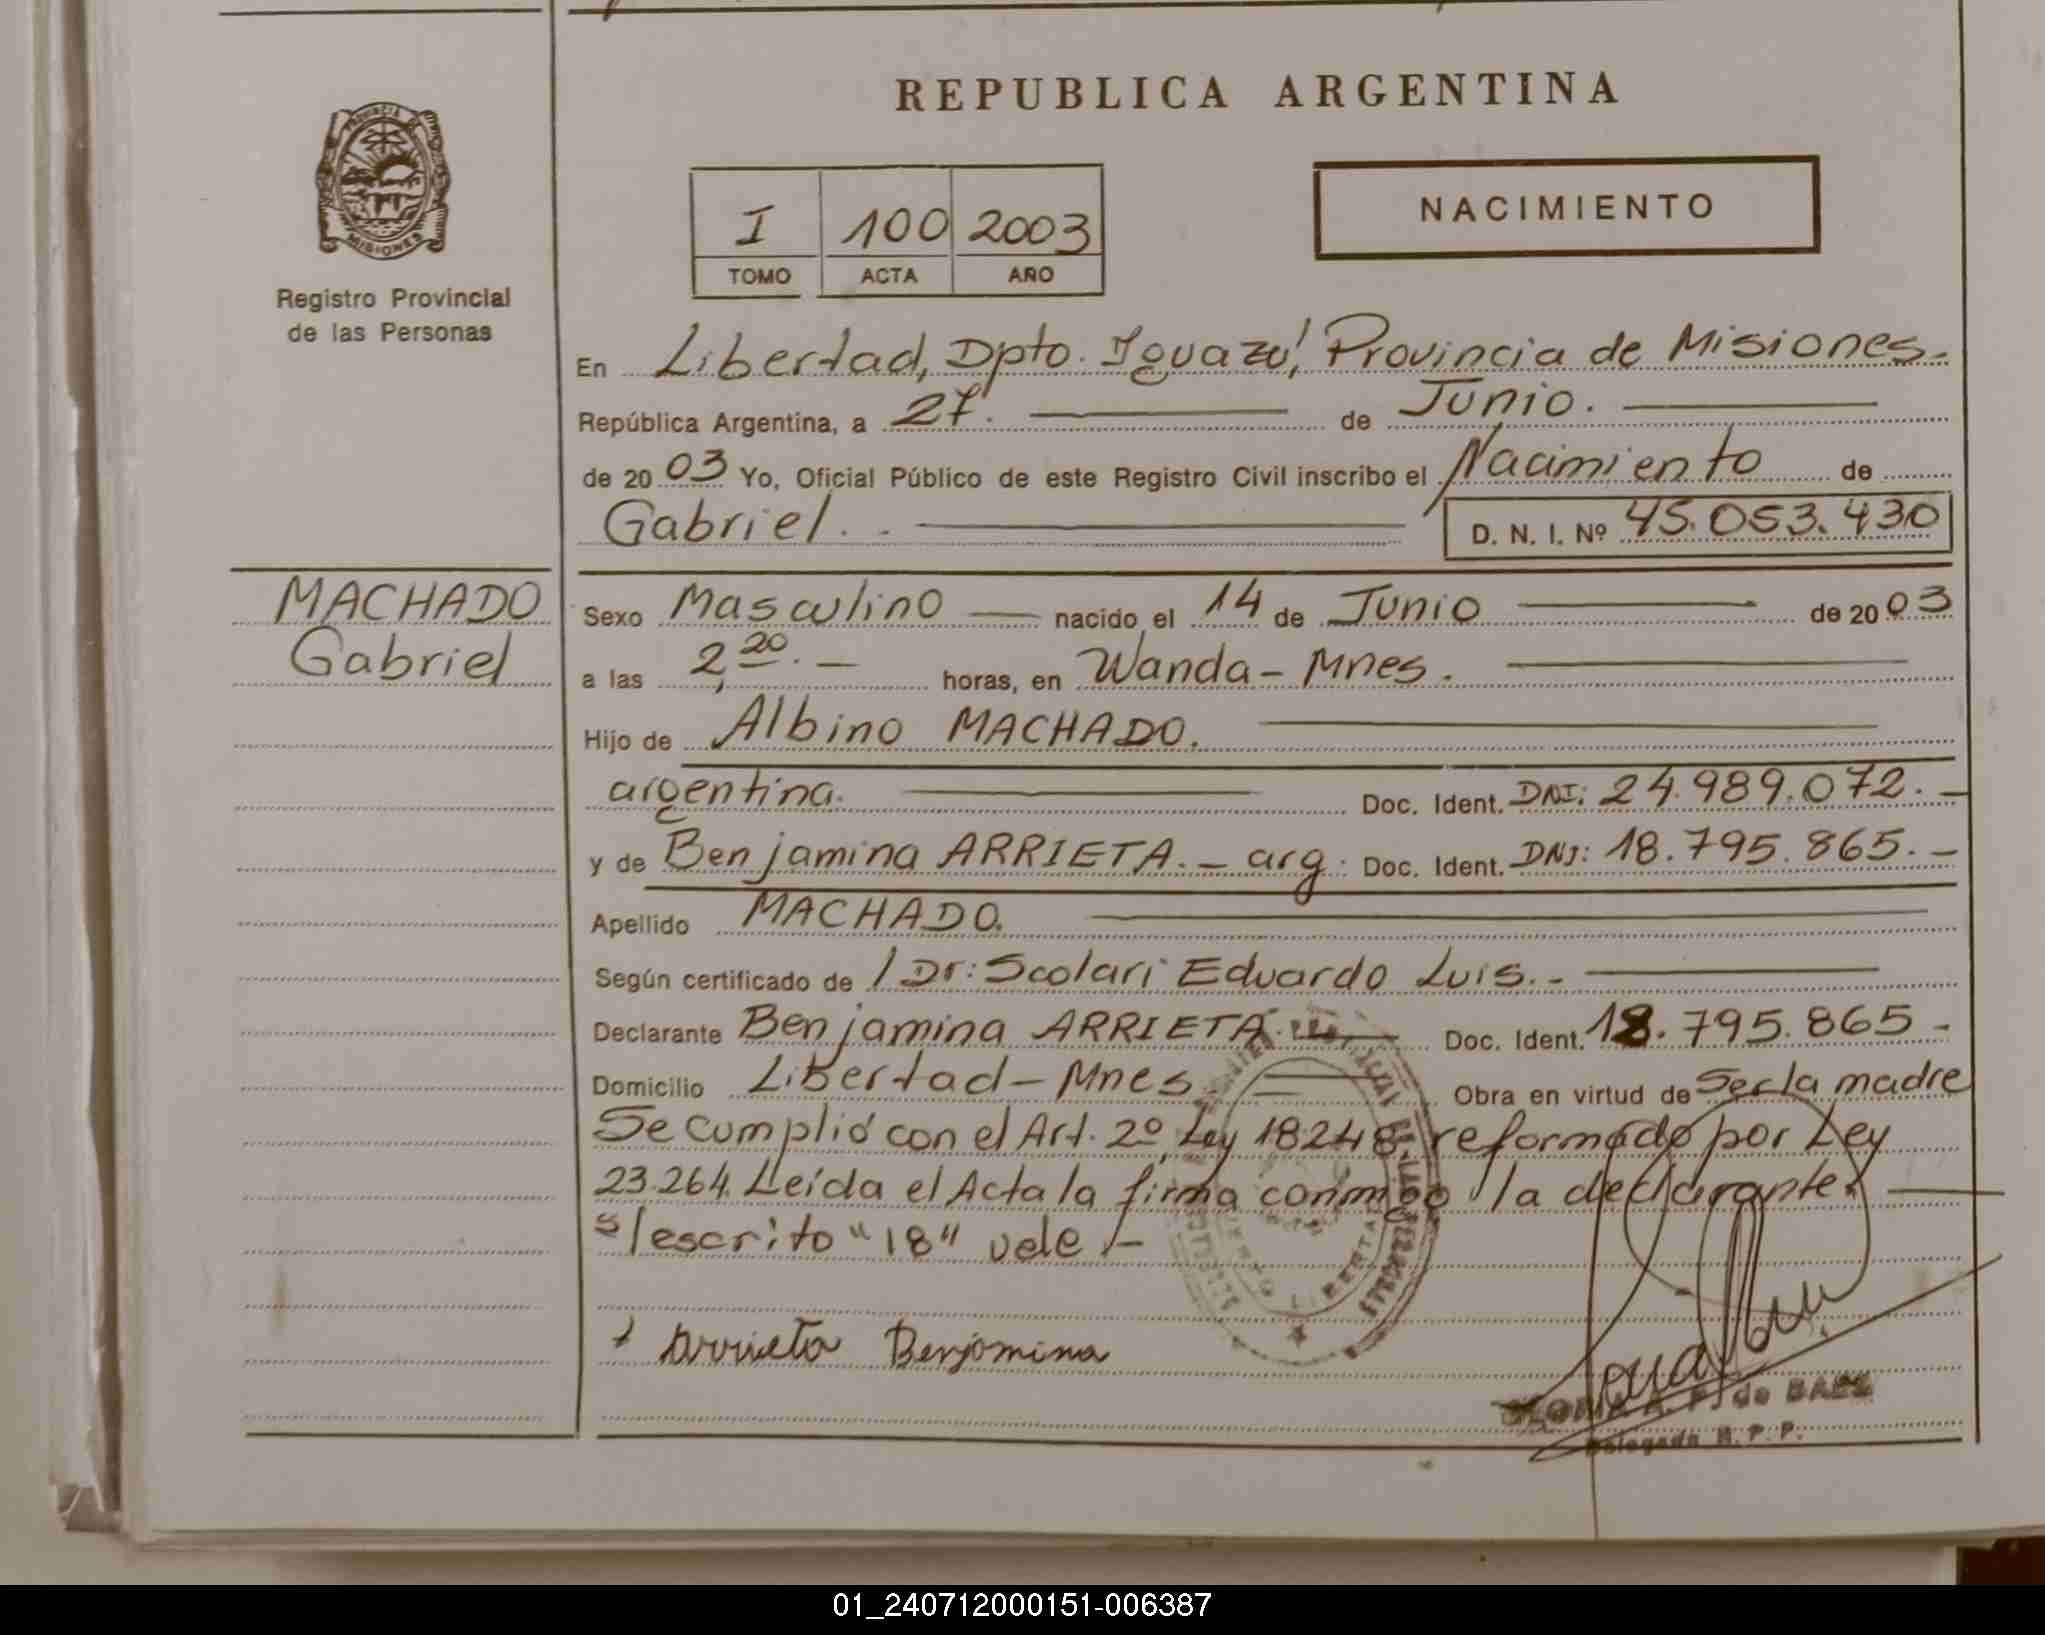 REPUBLICA ARGENTINA
PROVINCIA DE
MISIONES
Registro Provincial
de las Personas
I 100 2003
TOMO ACTA AÑO
NACIMIENTO
En Libertad, Dpto. Iguazú, Provincia de Misiones.-
República Argentina, a 27. de Junio.
de 20 03 Yo, Oficial Público de este Registro Civil inscribo el Nacimiento de
Gabriel. - D. N. I. Nº 45.053.430
MACHADO
Gabriel
Sexo Masculino nacido el 14 de Junio de 20 03
a las 2,20.- horas, en Wanda - Mnes.
Hijo de Albino MACHADO.
argentina. Doc. Ident. DNI: 24.989.072.-
y de Benjamina ARRIETA.- arg. Doc. Ident. DNI: 18.795.865.-
Apellido MACHADO.
Según certificado de / Dr: Scolari Eduardo Luis.-
Declarante Benjamina ARRIETA. Doc. Ident. 18.795.865-
Domicilio Libertad - Mnes Obra en virtud de Ser la madre
Se cumplió con el Art. 2º, Ley 18248, reformado por Ley
23.264. Leída el Acta la firma conmigo la declarante.
S/escrito "18" vale.-
LIBERTAD
Arrieta Benjamina
A. P. de BAEZ
Delegada R. P. P.
01_240712000151-006387